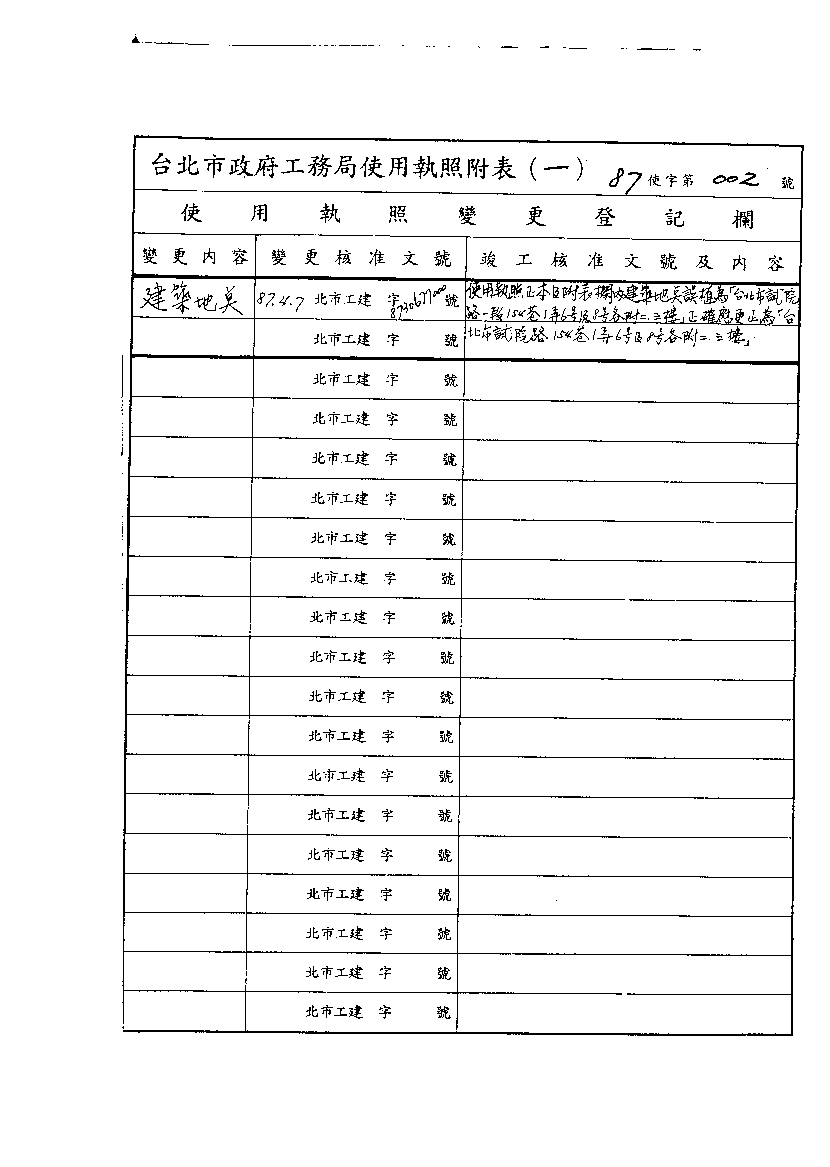 台北市政府工務局使用執照附表(一) 87使字第 002 號
使用執照變更登記欄
變更內容 變更核准文號 竣工核准文號及內容
建築地 87.4.7 北市工建 字 號 使用執照正本及附表欄內建築地誤植為「台北市試院
路一段154巷1弄6号及8号各附二.三樓」正確應更正為「台
北市工建 字 號 北市試院路154巷1弄6号及8号各附二.三樓」
北市工建 字 號
北市工建 字 號
北市工建 字 號
北市工建 字 號
北市工建 字 號
北市工建 字 號
北市工建 字 號
北市工建 字 號
北市工建 字 號
北市工建 字 號
北市工建 字 號
北市工建 字 號
北市工建 字 號
北市工建 字 號
北市工建 字 號
北市工建 字 號
北市工建 字 號